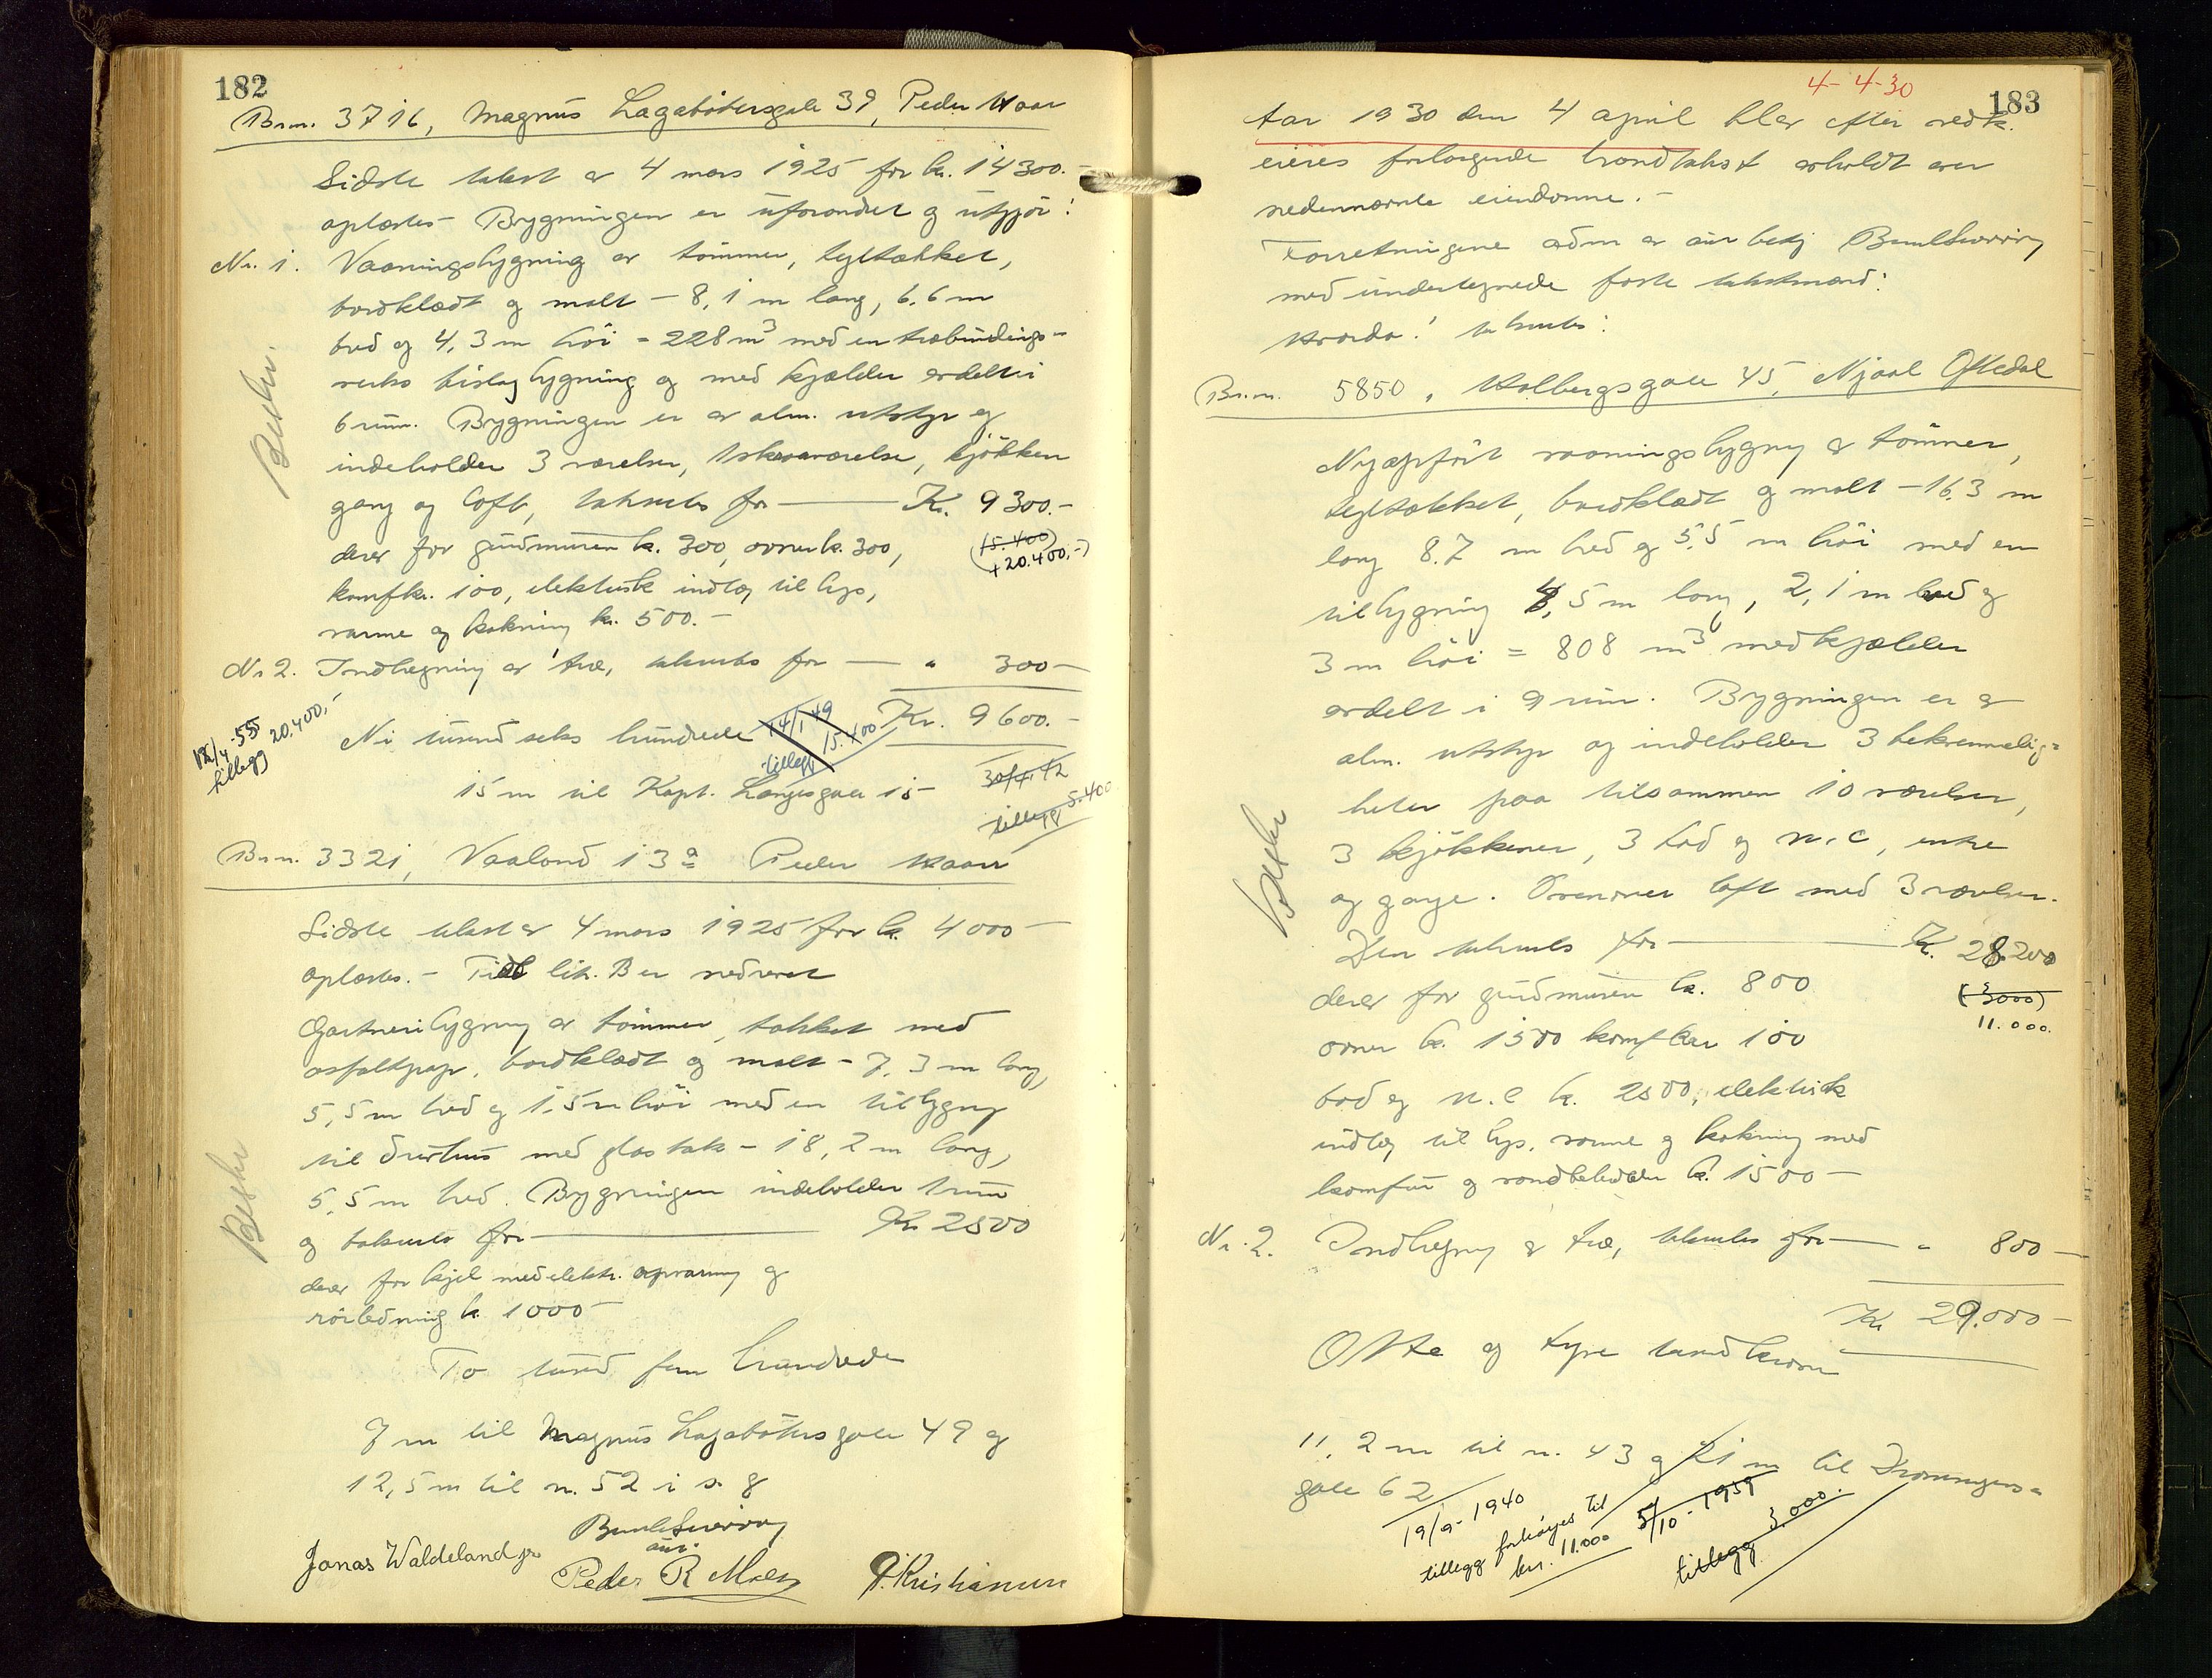 182
Brnr. 3716, Magnus Lagabøtersgate 39, Peder Haar
Sidste takst er 4 mars 1925 for kr. 14300.-
oplæstes - Bygningen er uforandret og utgjør:
Nr. 1. Vaaningsbygning av tømmer, tegltækket,
bordklædt og malt - 8,1 m lang, 6.6 m
bred og 4,3 m høi = 228 m³ med en utebindings-
verks bislag bygning og med kjælder avdelt i
6 rum. Bygningen er av alm. utstyr og
indeholder 3 værelser, 1 skraaværelse, kjøkken
gang og loft, takseres for — Kr. 9300.-
derav for grundmuren kr. 300, ovner kr. 300,
(15.400)
+20.400,-)
komf kr. 100, elektrisk indlæg til lys,
varme og kokning kr. 500.-
Nr 2. Indhegning av træ, takseres for — " 300-
Kr. 9600.-
Ni tusend seks hundrede
14/1 49
tillegg 15.400
12/4-55
tillegg 20.400,-
15 m til Kapt. Langesgate 15-
tillegg 5.400
Brnr. 3321, Vaaland 13a Peder Haar
Sidste takst er 4 mars 1925 for kr. 4000-
oplæstes. - litr. B er nedrevet
Gartneribygning av tømmer, tækket med
asfaltpap, bordklædt og malt - 7,3 m lang,
5,5 m bred og 1,5 m høi med en tilbygning
til drivhus med glastak - 18,2 m lang,
5,5 m bred. Bygningen indeholder 1 rum
og takseres for — Kr 2500
derav for kjel med elektr. opvarming og
rørledning kr. 1000-
To tusend fem hundrede
7 m til Magnus Lagabøtersgate 49 og
12,5 m til nr. 52 i s. g
Jonas Waldeland jr.
Peder R Moen
P. Kristiansen
4-4-30
183
Aar 1930 den 4 april blev efter vedk.
eieres forlangende brandtakst avholdt over
nedennævnte eiendomme. -
Forretningene adm av
med undertegnede faste takstmænd:
Hvorda! takseres:
Br.nr. 5850, Holbergsgate 45, Njaal Oftedal
Nyopført vaaningsbygning av tømmer,
tegltækket, bordklædt og malt - 16.3 m
lang 8.7 m bred og 5,5 m høi med en
tilbygning 4,5 m lang, 2,1 m bred og
3 m høi = 808 m³ med kjælder
avdelt i 9 rum. Bygningen er av
alm. utstyr og indeholder 3 bekvemmelig-
heter paa tilsammen 10 værelser,
3 kjøkkener, 3 bad og w.c, entre
og gange. Ovenover loft med 3 værelser.
Den takseres for — Kr. 28.200
derav for grundmuren kr. 800
(3000)
11.000.
ovner kr. 1500 komf kr 100
bad og w.c kr. 2500, elektrisk
indlæg til lys, varme og kokning med
komfur og vandbeholder kr. 1500-
Nr. 2. Indhegning av træ, takseres for — " 800-
Kr 29.000-
Otte og tyve tusend kroner
11,2 m til nr. 43 og 21 m til Dronningens-
gate 62
19/9-1940
tillegg forhøyes til
kr. 11.000
5/10-1939
tillegg 3.000.